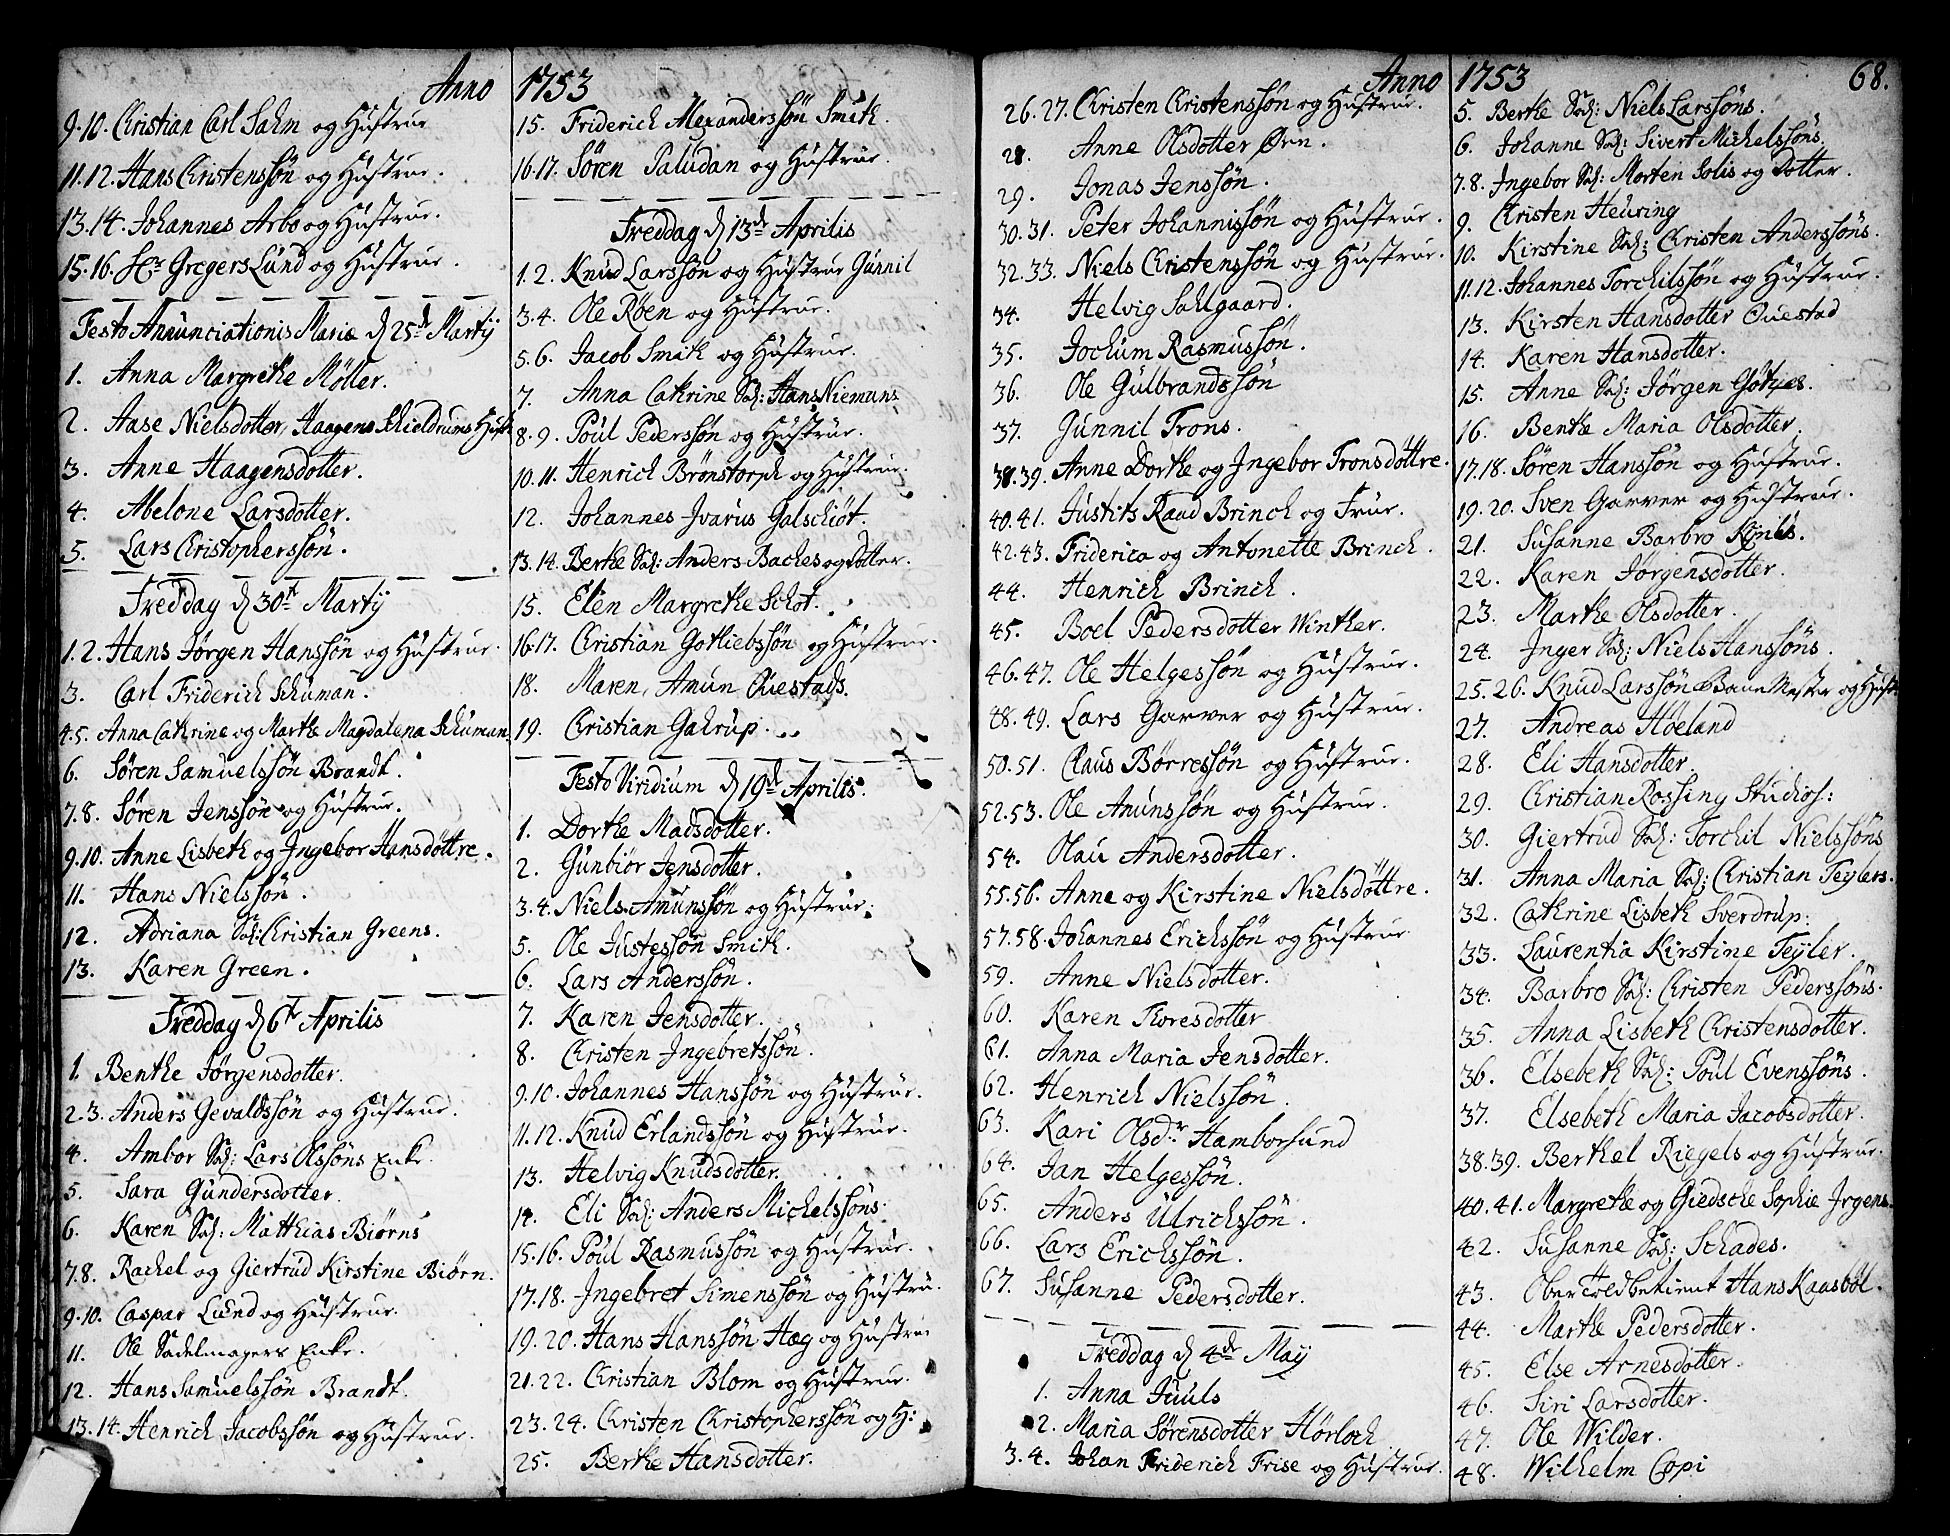 Anno 1753
9.10. Christian Carl Sahm og Hustrue
11.12. Hans Christenssön og Hustrue.
13.14. Johannes Arbo og Hustrue.
15.16. Hr Gregers Lund og Hustrue.
Festo Annunciationis Mariæ d 25de Martij
1. Anna Margrethe Möller.
2. Aase Nielsdotter, Haagens Schieldrums Hust
3. Anne Haagensdotter.
4. Abelone Larsdotter.
5. Lars Christopherssön.
Freddag d 30te Martij
1.2. Hans Jörgen Hanssön og Hustrue.
3. Carl Friderich Schuman.
4.5. Anna Cathrine og Marthe Magdalena Schuman.
6. Sören Samuelssön Brandt.
7.8. Sören Jenssön og Hustrue.
9.10. Anne Lisbeth og Ingebor Hansdöttre.
11. Hans Nielssön.
12. Adriana Sal: Christian Greens.
13. Karen Green.
Freddag d 6te Aprilis
1. Benthe Jörgensdotter.
2.3. Anders Gevaldssön og Hustrue.
4. Ambor Sal: Lars Olssöns Enke.
5. Sara Gundersdotter.
6. Karen Sal: Matthias Biörns
7.8. Rachel og Giertrud Kirstine Biörn.
9.10. Caspar Lund og Hustrue.
11. Ole Sadelmagers Enke.
12. Hans Samuelssön Brandt.
13.14. Henrich Jacobssön og Hustrue.
15. Friderich Alexanderssön Smith.
16.17. Sören Paludan og Hustrue.
Freddag d 13de Aprilis
1.2. Knud Larssön og Hustrue Gunnil
3.4. Ole Röen og Hustrue.
5.6. Jacob Smith og Hustrue.
7. Anna Cathrine Sal: Hans Niemans
8.9. Poul Pederssön og Hustrue.
10.11. Henrich Brönstorph og Hustrue.
12. Johannes Ivarus Galschiöt.
13.14. Berthe Sal: Anders Baches og Dotter.
15. Elen Margrethe Schot.
16.17. Christian Gotliebssön og Hustrue.
18. Maren Amun Ouestads.
19. Christian Gahrup.
Festo Viridium d 19de Aprilis.
1. Dorthe Madsdotter.
2. Gunbiör Jensdotter.
3.4. Niels Amunssön og Hustrue.
5. Ole Justessön Smith.
6. Lars Anderssön.
7. Karen Jensdotter.
8. Christen Ingebretssön.
9.10. Johannes Hanssön og Hustrue.
11.12. Knud Erlandssön og Hustrue.
13. Helvig Knudsdotter.
14. Eli Sal: Anders Michelssöns.
15.16. Poul Rasmussön og Hustrue.
17.18. Ingebret Simenssön og Hustru.
19.20. Hans Hanssön Hæg og Hustrue
21.22. Christian Blom og Hustrue.
23.24. Christen Christopherssön og H:
25. Berthe Hansdotter.
Anno 1753 68.
26.27. Christen Christenssön og Hustrue.
28. Anne Olsdotter Örn.
29. Jonas Jenssön.
30.31. Peter Johannissön og Hustrue.
32.33. Niels Christenssön og Hustrue.
34. Helvig Sahlgaard.
35. Jochum Rasmussön.
36. Ole Gulbrandssön
37. Gunnil Trons.
38.39. Anne Dorthe og Ingebor Tronsdöttre.
40.41. Justits Raad Brinch og Frue.
42.43. Friderica og Antonette Brinch.
44. Henrich Brinch.
45. Boel Pedersdotter Winther.
46.47. Ole Helgessön og Hustrue.
48.49. Lars Garver og Hustrue.
50.51. Claus Börressön og Hustrue.
52.53. Ole Amunssön og Hustrue.
54. Olau Andersdotter.
55.56. Anne og Kirstine Nielsdöttre.
57.58. Johannes Erichssön og Hustrue
59. Anne Nielsdotter.
60. Karen Thoresdotter
61. Anna Maria Jensdotter.
62. Henrich Nielssön.
63. Kari Olsdr Hamborsund
64. Jan Helgessön.
65. Anders Ulrichssön.
66. Lars Erichssön.
67. Susanne Pedersdotter.
Freddag d 4de Maij
1. Anna Juuls
2. Maria Sörensdotter Hörloch
3.4. Johan Friderich Frise og Hustrue.
5. Berthe Sal: Niels Larssöns.
6. Johanne Sal: Sivert Michelssöns.
7.8. Ingebor Sal: Morten Solis og Dotter.
9. Christen Heuring
10. Kirstine Sal: Christen Anderssöns.
11.12. Johannes Torchilssön og Hustrue.
13. Kirsten Hansdotter Ouestad
14. Karen Hansdotter.
15. Anne Sal: Jörgen Götzes.
16. Benthe Maria Olsdotter.
17.18. Sören Hanssön og Hustrue.
19.20. Sven Garver og Hustrue.
21. Susanne Barbro
22. Karen Jörgensdotter.
23. Marthe Olsdotter.
24. Inger Sal: Niels Hanssöns.
25.26. Knud Larssön Bane Mester og Hust
27. Andreas Höeland
28. Eli Hansdotter.
29. Christian Rossing Studios:
30. Giertrud Sal: Torchil Nielssöns
31. Anna Maria Sal: Christian Teylers.
32. Cathrine Lisbeth Sverdrup.
33. Laurentia Kirstine Teyler.
34. Barbro Sal: Christen Pederssöns.
35. Anna Lisbeth Christensdotter.
36. Elsebeth Sal: Poul Evenssöns.
37. Elsebeth Maria Jacobsdotter.
38.39. Berthel Riegels og Hustrue.
40.41. Margrethe og Giedsche Sophie Irgens.
42. Susanne Sal: Schades.
43. Hans Kaasböl.
44. Marthe Pedersdotter.
45. Else Arnesdotter.
46. Siri Larsdotter.
47. Ole Wilder.
48. Wilhelm Copi